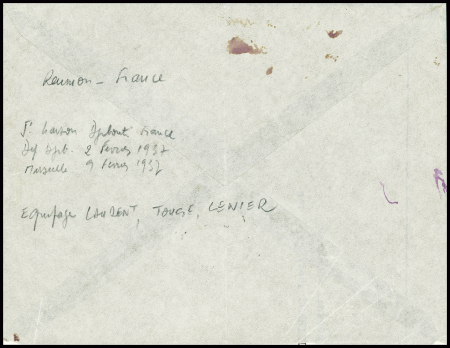 Reunion – France
1e liaison Djibouti France
Dep Djib. 2 Fevrier 1937
Marseille 9 Fevrier 1937
Equipage LAURENT, TOUGE, LENIER